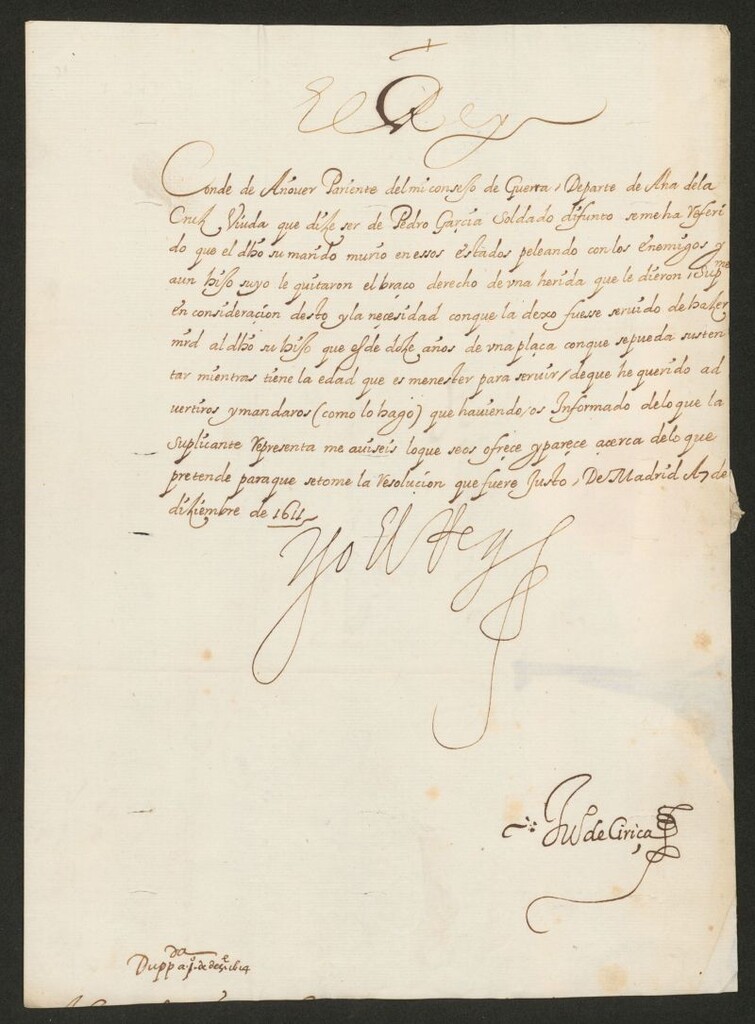 El Rey
Conde de Añover Pariente del mi consejo de Guerra, De parte de Ana dela
Cruz Viuda que dize ser de Pedro Garcia Soldado difunto seme ha Referi
do que el dho su marido murio en essos estados peleando con los enemigos y
aun hijo suyo le quitaron el braço derecho de vna herida que le dieron, Supme
en consideraçion desto y la neçesidad con que la dexo fuesse seruido de hazer
mrd al dho su hijo que es de doze años de vna plaça con que se pueda susten
tar mientras tiene la edad que es menester para seruir/ de que he querido ad
vertiros y mandaros (como lo hago) que hauiendo/os Informado delo que la
Suplicante Representa me auiseis lo que se os ofreçe y pareçe açerca delo que
pretende para que se tome la Resoluçion que fuere Justo, De Madrid A 7 de
diziembre de 1614
Yo El Rey
Ju de Ciriça
Dupp da a de 1614